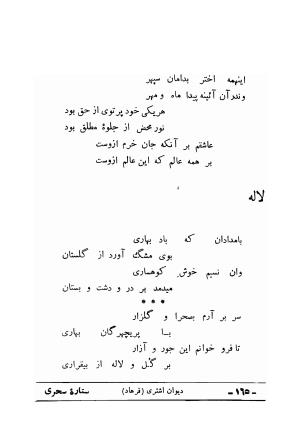 اینهمه اختر بدامان سپهر
وندر آن آئینه پیدا ماه و مهر
هریکی خود پرتوی از حق بود
نور محض از جلوهٔ مطلق بود
عاشقم بر آنکه جان خرم ازوست
بر همه عالم که این عالم ازوست
لاله
بامدادان که باد بهاری
بوی مشگ آورد از گلستان
وان نسیم خوش کوهساری
میدمد بر در و دشت و بستان
***
سر بر آرم بصحرا و گلزار
با پریچهرگان بهاری
تا فرو خوانم این جور و آزار
بر گل و لاله از بیقراری
- ۱۶۵ - دیوان اشتری (فرهاد) ستارهٔ سحری